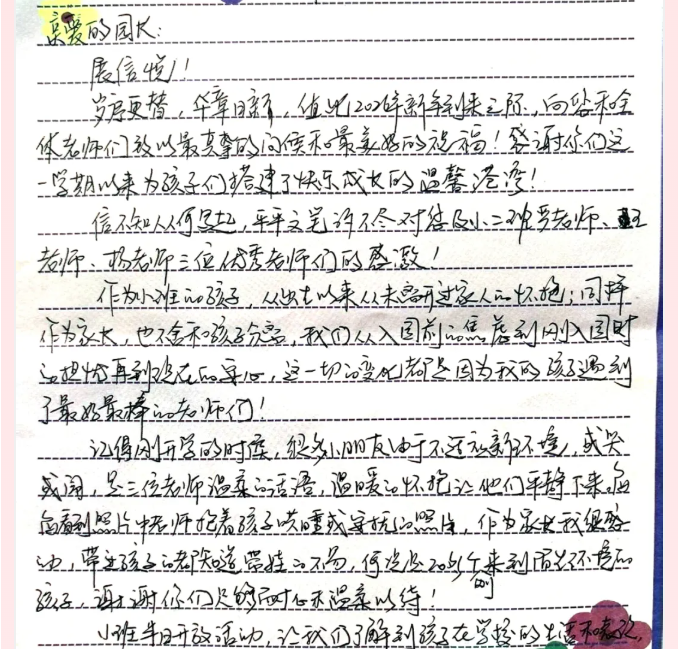 亲爱的园长:
展信悦!
岁序更替,华章日新,值此2021年新年到来之际,向您和全
体老师们致以最真挚的问候和最美好的祝福!感谢你们这
一学期以来为孩子们搭建了快乐成长的温馨港湾!
信不知从何写起,平平文笔许不尽对您及小二班贾老师、王
老师、杨老师三位优秀老师们的感激!
作为小班的孩子,从出生以来从未离开过家人的怀抱;同样
作为家长,也不舍和孩子分离,我们从入园前的焦虑到刚入园时
的担忧再到现在的安心,这一切的变化都是因为我的孩子遇到
了最好最棒的老师们!
记得刚开学的时候,很多小朋友由于不适应新环境,或哭
或闹,是三位老师温柔的话语,温暖的怀抱让他们平静下来。每
每看到照片中老师抱着孩子哄睡或安抚的照片,作为家长我很感
动,带过孩子的都知道带娃的不易,何况是20多个刚来到陌生环境的
孩子,谢谢你们足够耐心和温柔以待!
小班半日开放活动,让我们了解到孩子在学校的生活和喜欢,